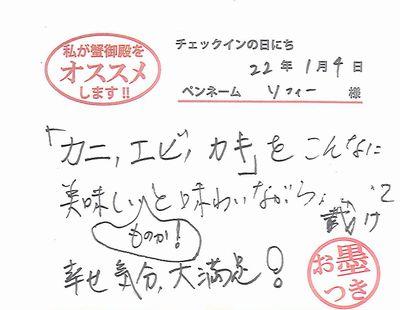 私が蟹御殿を
オススメ
します!!
チェックインの日にち
22年1月4日
ペンネーム ソフィー 様
「カニ,エビ,カキ」をこんなに
美味しいと味わいながら、
ものか!
幸せ気分,大満足!
お墨
つき